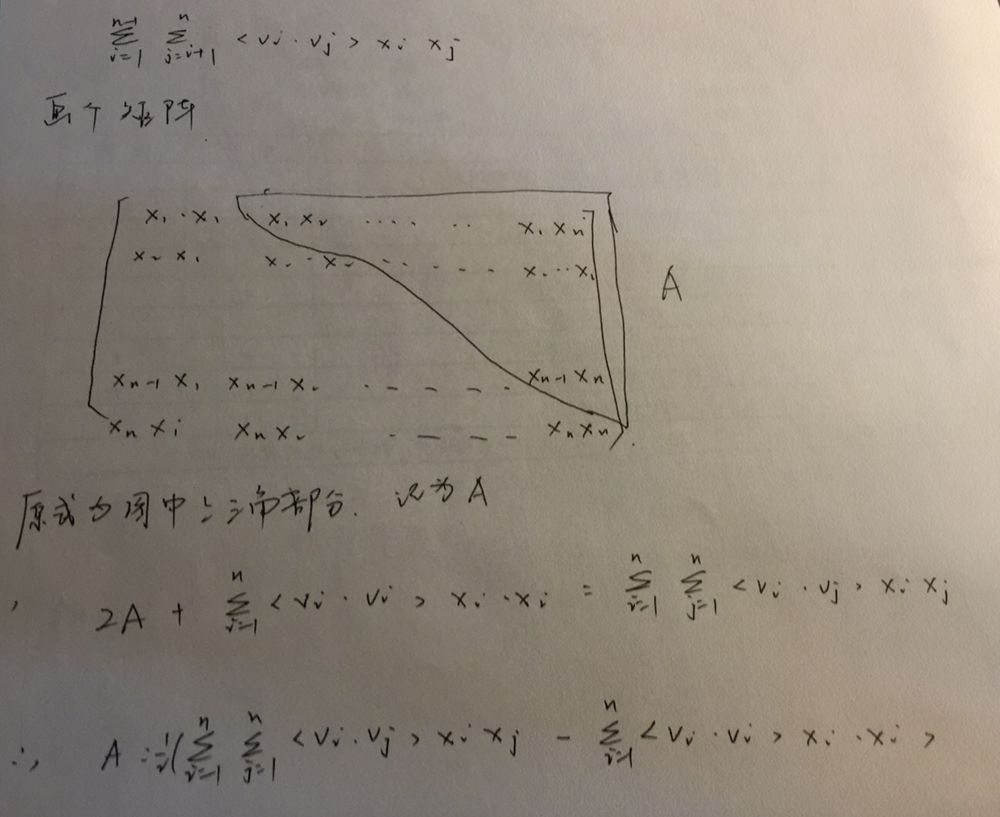 \sum_{i=1}^{n-1} \sum_{j=i+1}^{n} <v_i · v_j> x_i x_j
画个矩阵
x_1 · x_1 x_1 x_2 ····· ·· x_1 x_n
x_2 x_1 x_2 · x_2 ·---- x_1 ·· x_1
A
x_{n-1} x_1 x_{n-1} x_2 ·---- x_{n-1} x_n
x_n x_i x_n x_2 ·---- x_n x_n
原式为图中上三角部分. 设为A
, 2A + \sum_{i=1}^{n} <v_i · v_i> x_i · x_i = \sum_{i=1}^{n} \sum_{j=1}^{n} <v_i · v_j> x_i x_j
∴, A = \frac{1}{2}(\sum_{i=1}^{n} \sum_{j=1}^{n} <v_i · v_j> x_i x_j - \sum_{i=1}^{n} <v_i · v_i> x_i · x_i >